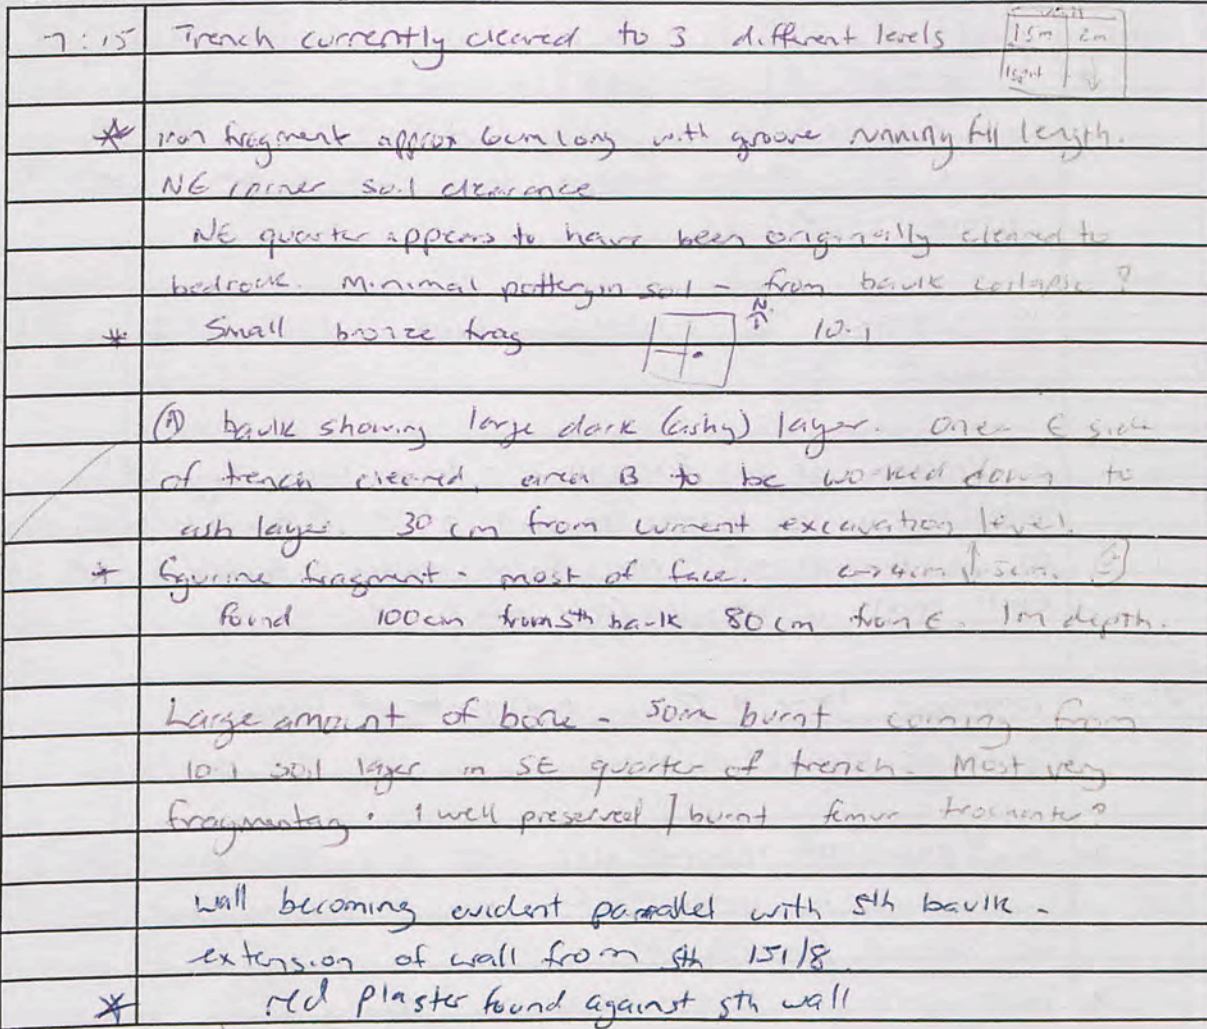 7:15 Trench currently cleared to 3 different levels
wall
1.5m 2m
* iron fragment approx 6cm long with groove running full length.
NE corner soil clearance
NE quarter appears to have been originally cleared to
bedrock. Minimal pottery in soil - from baulk collapse?
* Small bronze frag N 10.1
(A) baulk showing large dark (ashy) layer. Once E side
of trench cleared, area B to be worked down to
ash layer. 30 cm from current excavation level.
* figurine fragment - most of face. ↔ 4cm ↕ 5cm.
found 100cm from sth baulk 80 cm from E. 1m depth.
Large amount of bone - some burnt coming from
10.1 soil layer in SE quarter of trench. Most very
fragmentary. 1 well preserved / burnt femur trochanter?
wall becoming evident parallel with sth baulk -
extension of wall from sth 151/8
* red plaster found against sth wall